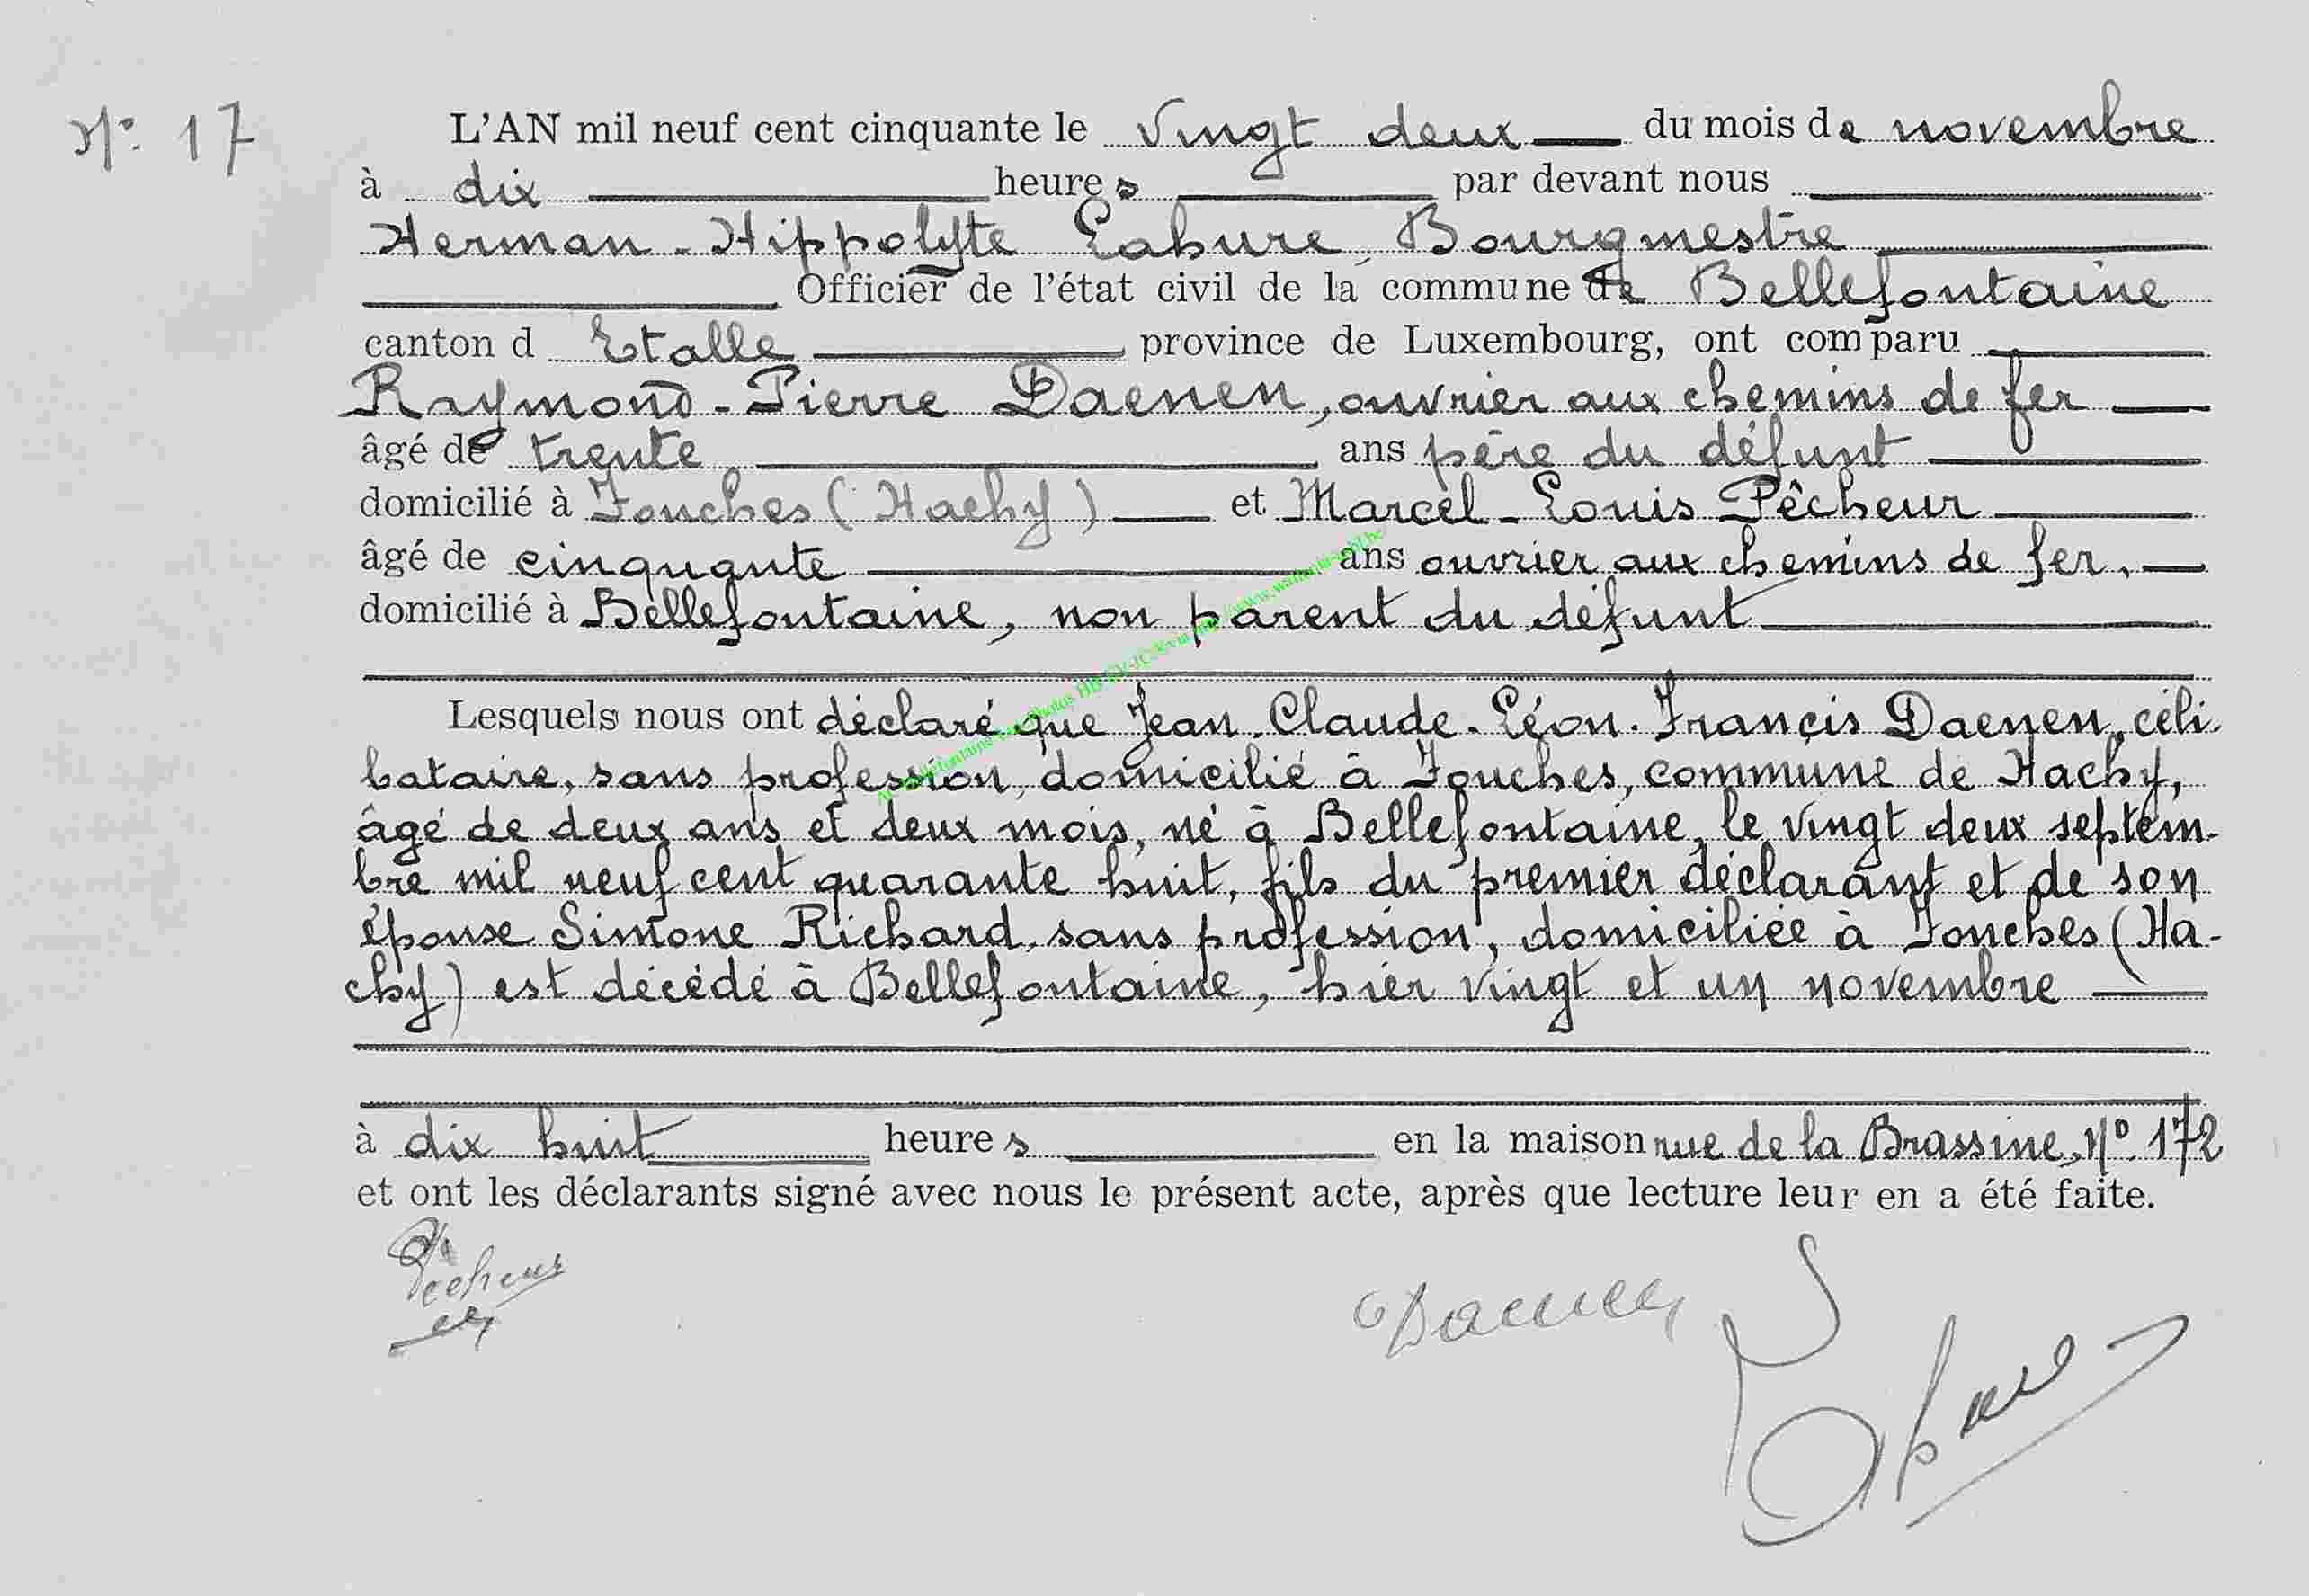 N° 17
L'AN mil neuf cent cinquante le vingt deux du mois de novembre
à dix heures par devant nous
Herman-Hippolyte Lahure, Bourgmestre
Officier de l'état civil de la commune de Bellefontaine
canton d Etalle province de Luxembourg, ont comparu
Raymond-Pierre Daenen, ouvrier aux chemins de fer
âgé de trente ans père du défunt
domicilié à Fouches (Hachy) et Marcel-Louis Pêcheur
âgé de cinquante ans ouvrier aux chemins de fer,
domicilié à Bellefontaine, non parent du défunt
Lesquels nous ont déclaré que Jean-Claude-Léon-Francis Daenen, céli-
bataire, sans profession, domicilié à Fouches, commune de Hachy,
âgé de deux ans et deux mois, né à Bellefontaine, le vingt deux septem-
bre mil neuf cent quarante huit, fils du premier déclarant et de son
épouse Simone Richard, sans profession, domiciliée à Fouches (Ha-
chy) est décédé à Bellefontaine, hier vingt et un novembre
à dix huit heures en la maison rue de la Brassine, N° 172
et ont les déclarants signé avec nous le présent acte, après que lecture leur en a été faite.
Pêcheur
Daenen
Lahure